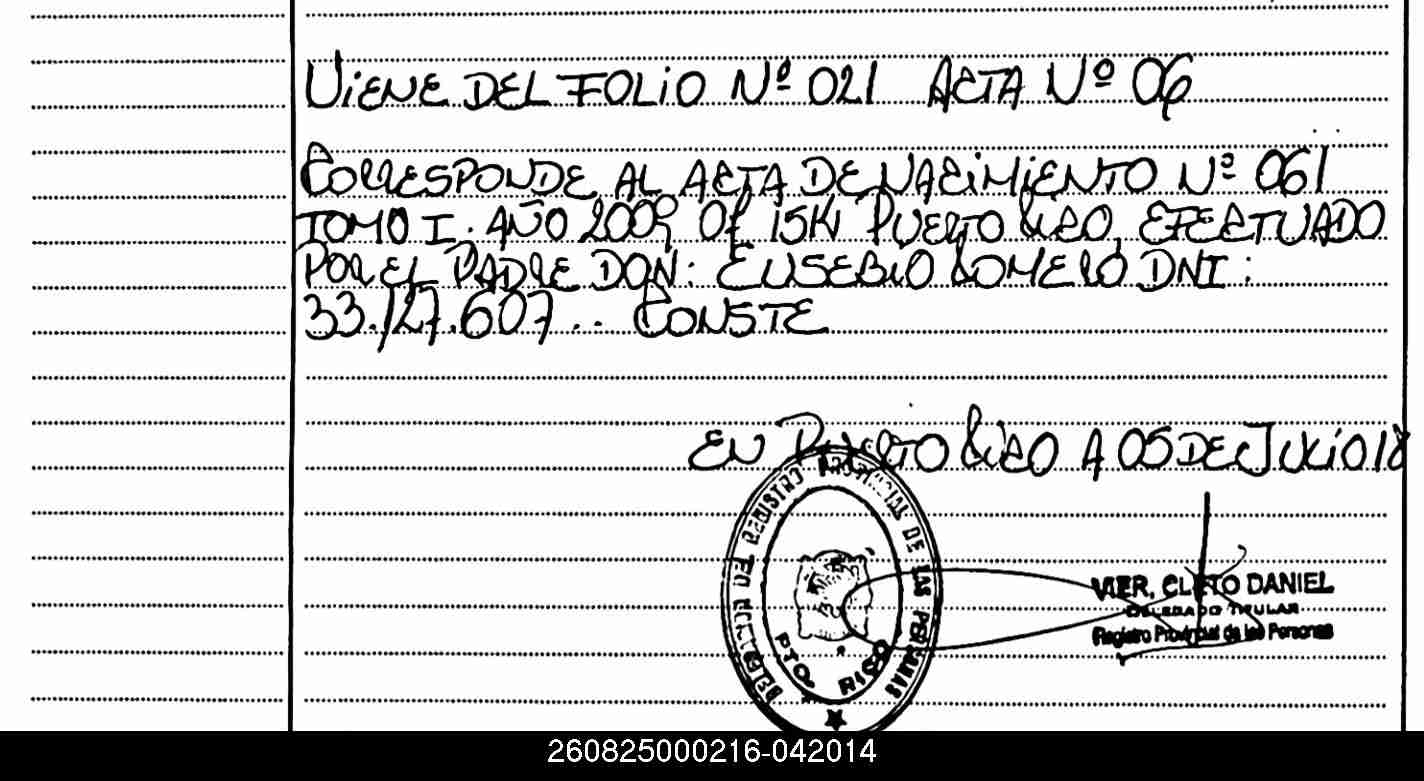 VIENE DEL FOLIO Nº 021 ACTA Nº 06
CORRESPONDE AL ACTA DE NACIMIENTO Nº 061
TOMO I. AÑO 2009 Of 15K1 PUERTO RICO, EFECTUADO
POR EL PADRE DON: EUSEBIO ROMERO DNI:
33.127.607.. CONSTE
EN PUERTO RICO A 05 DE JULIO 18
DEL REGISTRO PROVINCIAL DE LAS PERSONAS
PTO. RICO
VIER, CLETO DANIEL
DELEGADO TITULAR
Registro Provincial de las Personas
260825000216-042014